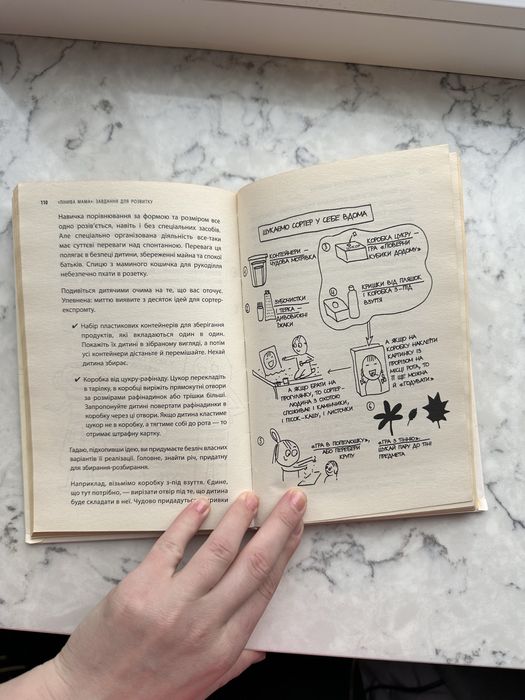 110 «ЛІНИВА МАМА»: ЗАВДАННЯ ДЛЯ РОЗВИТКУ
Навичка порівнювання за формою та розміром все
одно розів'ється, навіть і без спеціальних засобів.
Але спеціально організована діяльність все-таки
має суттєві переваги над спонтанною. Перевага ця
полягає в безпеці дитини, збереженні майна та спокої
батьків. Спицю з маминого кошичка для рукоділля
небезпечно пхати в розетку.
Подивіться дитячими очима на те, що вас оточує.
Упевнена: миттю виявите з десяток ідей для сортер-
експромту.
✔ Набір пластикових контейнерів для зберігання
продуктів, які вкладаються один в один.
Покажіть їх дитині в зібраному вигляді, а потім
усі контейнери дістаньте й перемішайте. Нехай
дитина збирає.
✔ Коробка від цукру-рафінаду. Цукор перекладіть
в тарілку, в коробці виріжте прямокутні отвори
за розмірами рафінадинки або трішки більші.
Запропонуйте дитині повертати рафінадинки в
коробку через ці отвори. Якщо дитина кластиме
цукор не в коробку, а тягтиме собі до рота — то
отримає штрафну картку.
Гадаю, підхопивши ідею, ви придумаєте безліч власних
варіантів її реалізації. Головне, знайти річ, придатну
для збирання-розбирання.
Наприклад, візьмімо коробку з-під взуття. Єдине,
що тут потрібно, — вирізати отвір під те, що дитина
буде складати в неї. Чудово придадуться
ШУКАЄМО СОРТЕР У СЕБЕ ВДОМА
КОНТЕЙНЕРИ –
ЧУДОВА МОТРІЙКА
КОРОБКА ЦУКРУ –
ГРА «ПОВЕРНИ
КУБИКИ ДОДОМУ»
ЗУБОЧИСТКИ
І ТЕРКА –
ДИВОВИЖНІ
ЇЖАКИ
КРИШКИ ВІД ПЛЯШОК
І КОРОБКА З-ПІД
ВЗУТТЯ
А ЯКЩО БРАТИ НА
ПРОГУЛЯНКУ, ТО СОРТЕР-
ЛЮДИНА З ОХОТОЮ
СПОЖИВАЄ І КАМІНЧИКИ,
І ПІСОК-КАШУ, І ЛИСТОЧКИ
А ЯКЩО НА
КОРОБКУ НАКЛЕЇТИ
КАРТИНКУ ІЗ
ПРОРІЗОМ НА
МІСЦІ РОТА, ТО
ЇЇ ЩЕ МОЖНА
Й «ГОДУВАТИ»
5 «ГРА В ПОПЕЛЮШКУ»,
АБО ПЕРЕБЕРИ
КРУПУ
6 «ГРА В ТІНЮ»:
ШУКАЙ ПАРУ ДО ТІНІ
ПРЕДМЕТА